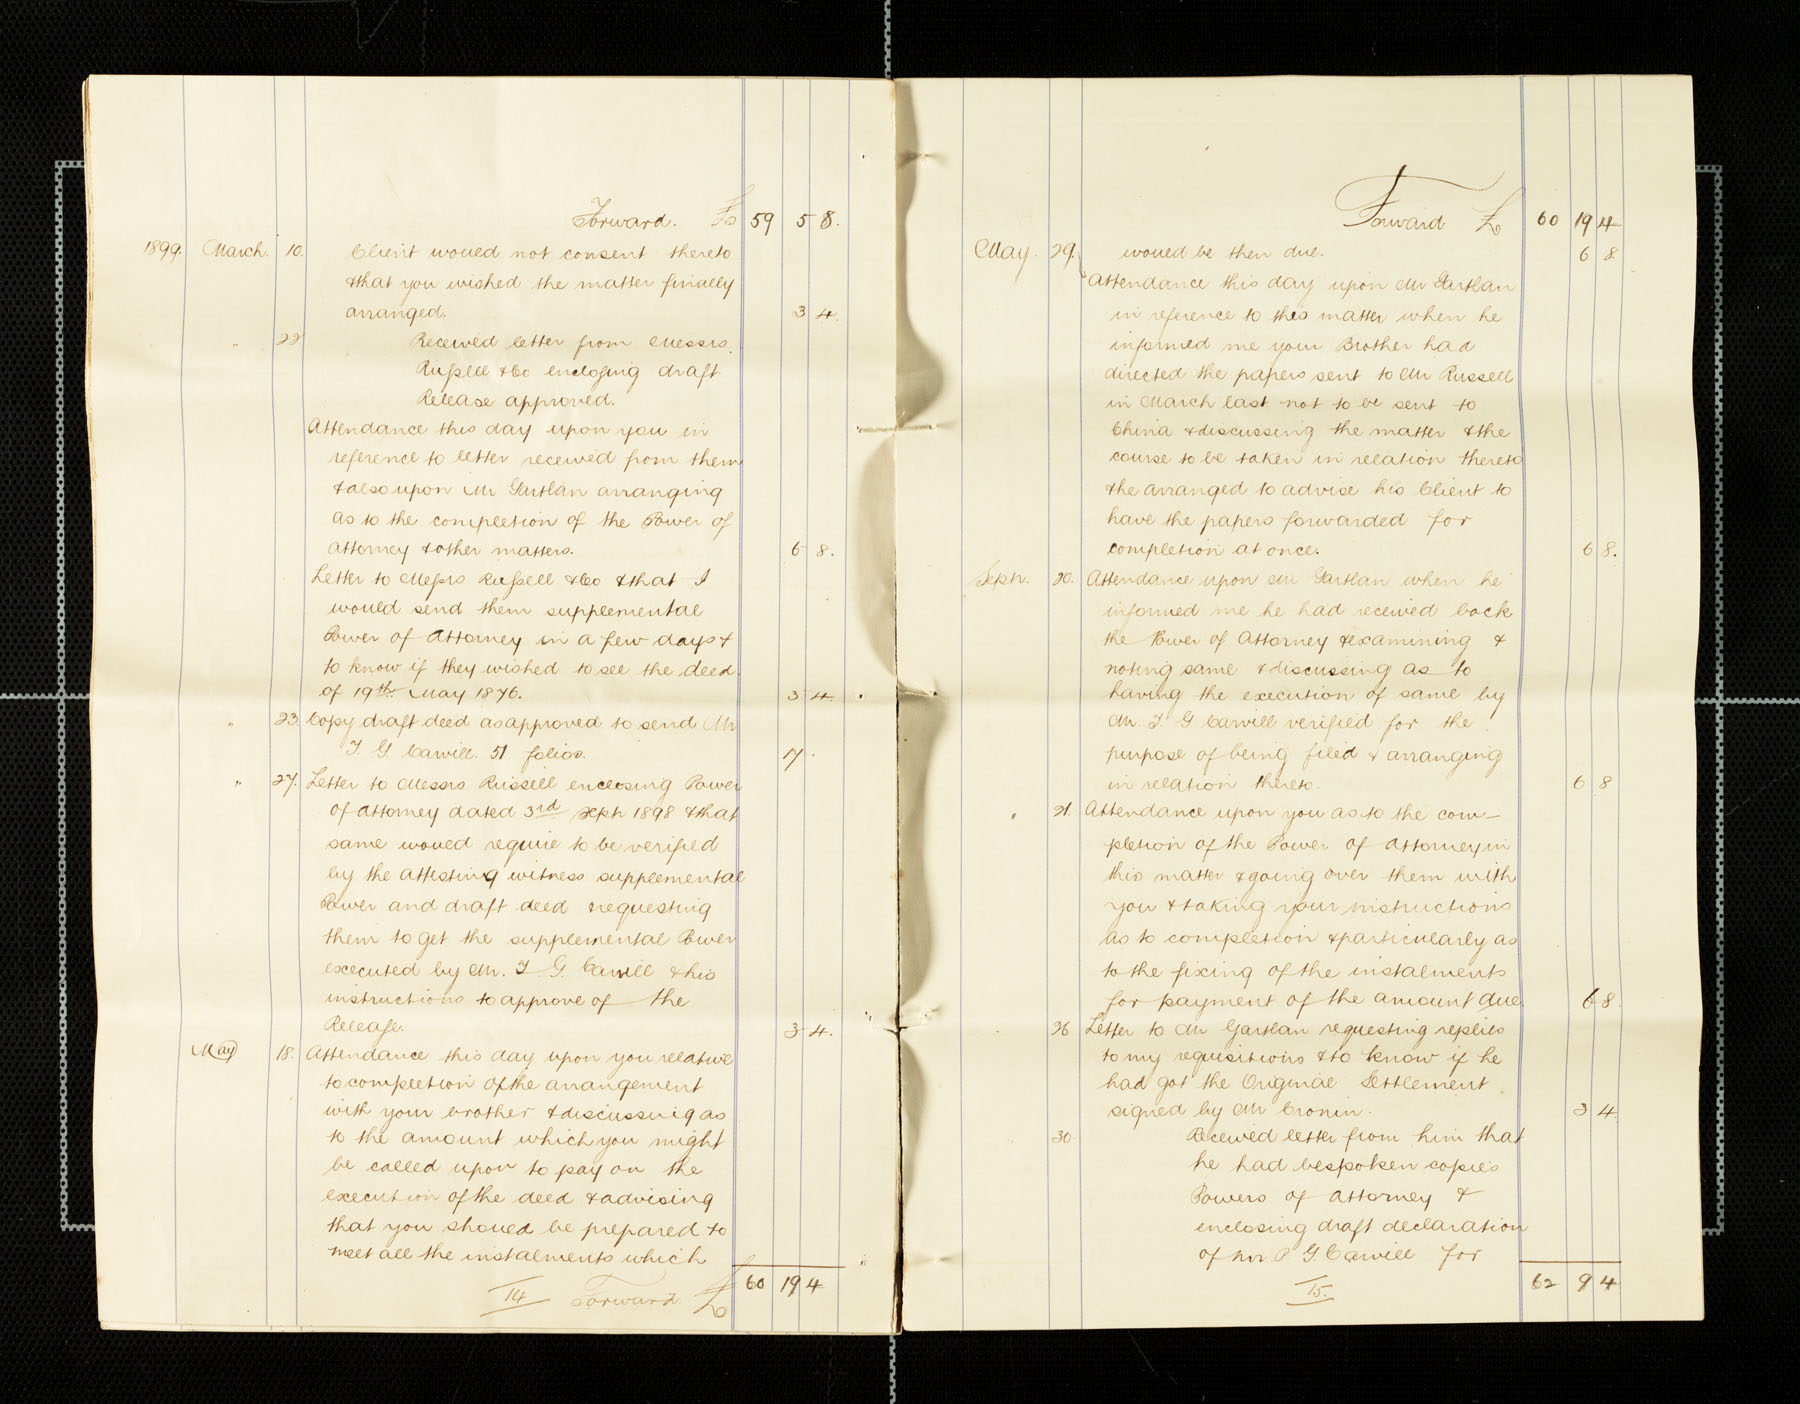 Forward. £ 59 5 8.
1899. March. 10. Client would not consent thereto
& that you wished the matter finally
arranged. 3 4.
" 22 Received letter from Messrs.
Russell & Co enclosing draft
Release approved.
Attendance this day upon you in
reference to letter received from them
& also upon Mr Gartlan arranging
as to the completion of the Power of
Attorney & other matters. 6 8.
Letter to Messrs Russell & Co & that I
would send them supplemental
Power of Attorney in a few days &
to know if they wished to see the deed
of 19th May 1876. 3 4.
" 23. Copy draft deed as approved to send Mr
T G Carvill. 51 folios. 17 .
" 27. Letter to Messrs Russell enclosing Power
of Attorney dated 3rd Sept 1898 & that
same would require to be verified
by the attesting witness supplemental
Power and draft deed & requesting
them to get the supplemental Power
executed by Mr. T G. Carvill & his
instructions to approve of the
Release. 3 4.
May 18. Attendance this day upon you relative
to completion of the arrangement
with your brother & discussing as
to the amount which you might
be called upon to pay on the
execution of the deed & advising
that you should be prepared to
meet all the instalments which
14 Forward. £ 60 19 4
Forward £ 60 19 4
May. 29. would be then due. 6 8
Attendance this day upon Mr Gartlan
in reference to this matter when he
informed me your Brother had
directed the papers sent to Mr Russell
in March last not to be sent to
China & discussing the matter & the
course to be taken in relation thereto
& he arranged to advise his Client to
have the papers forwarded for
completion at once. 6 8.
Sept. 20. Attendance upon Mr Gartlan when he
informed me he had received back
the Power of Attorney & examining &
noting same & discussing as to
having the execution of same by
Mr. T G Carvill verified for the
purpose of being filed & arranging
in relation thereto. 6 8
" 21. Attendance upon you as to the com-
pletion of the Power of Attorney in
this matter & going over them with
you & taking your instructions
as to completion & particularly as
to the fixing of the instalments
for payment of the amount due. 6 8.
26 Letter to Mr Gartlan requesting replies
to my requisitions & to know if he
had got the Original Settlement
signed by Mr Cronin. 3 4
30 Received letter from him that
he had bespoken copies
Powers of Attorney &
enclosing draft declaration
of Mr P G Carvill for
15. 62 9 4